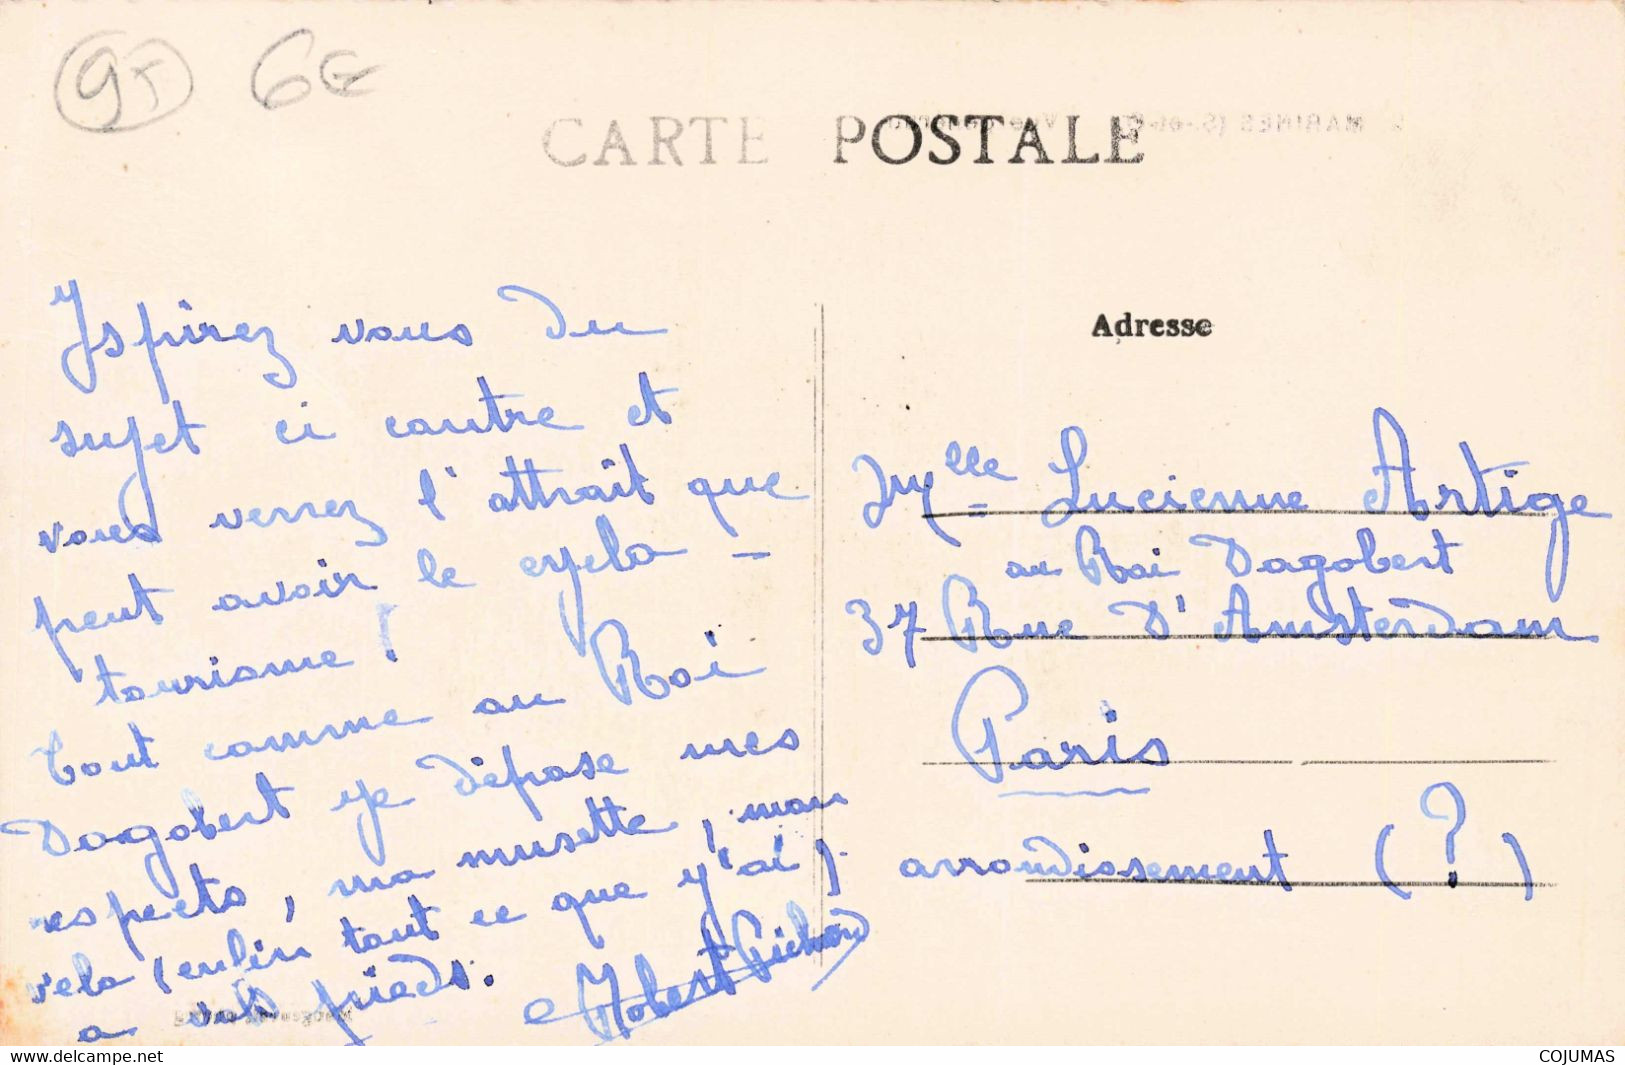 95 6€
CARTE POSTALE
Ispirez vous du
sujet ci contre et
vous verrez l'attrait que
peut avoir le cyclo -
tourisme !
Tout comme au Roi
Dagobert je dépose mes
respects, ma musette, mon
velo (enfin tout ce que j'ai)
a vos pieds.
Robert Pichon
Adresse
Mlle Lucienne Artige
au Roi Dagobert
37 Rue D'Amsterdam
Paris
arrondissement (?)
www.delcampe.net
COJUMAS